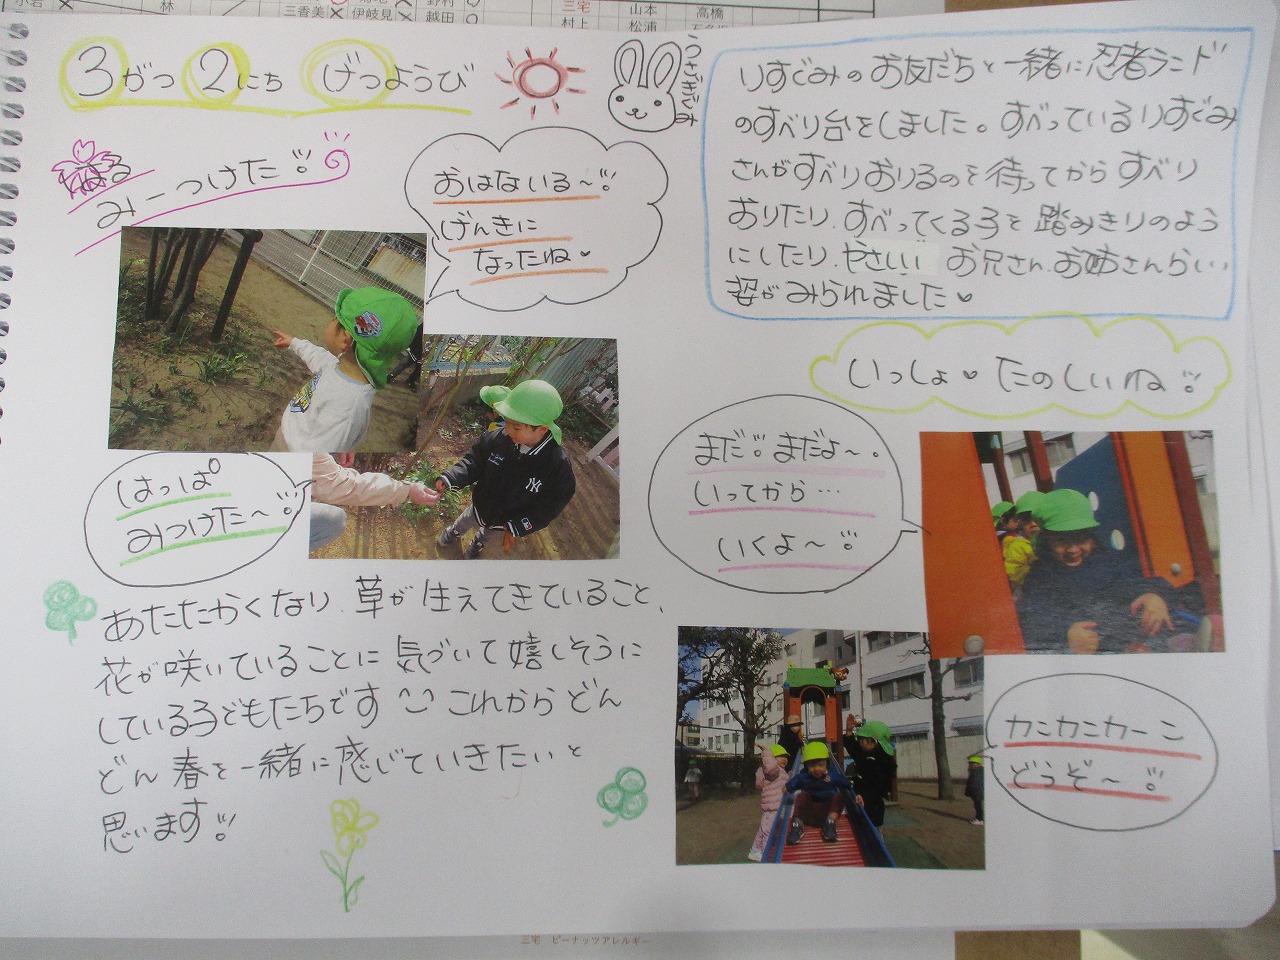 林
三香美
伊岐見
野村
越田
三宅
村上
山本
松浦
高橋
3がつ2にち げつようび
うさぎぐみ
はる
みーつけた
おはないる〜
げんきに
なったね
はっぱ
みつけた〜
あたたかくなり、草が生えてきていること、
花が咲いていることに気づいて嬉しそうに
している子どもたちです これからどん
どん春を一緒に感じていきたいと
思います
りすぐみのお友だちと一緒に忍者ランド
のすべり台をしました。すべっているりすぐみ
さんがすべりおりるのを待ってからすべり
おりたり、すべってくる子を踏みきりのよう
にしたり、やさしい お兄さん、お姉さんらしい
姿がみられました
いっしょ たのしいね
まだ まだよ〜。
いってから…
いくよ〜
カンカンカーン
どうぞ〜
NY
三宅 ピーナッツアレルギー